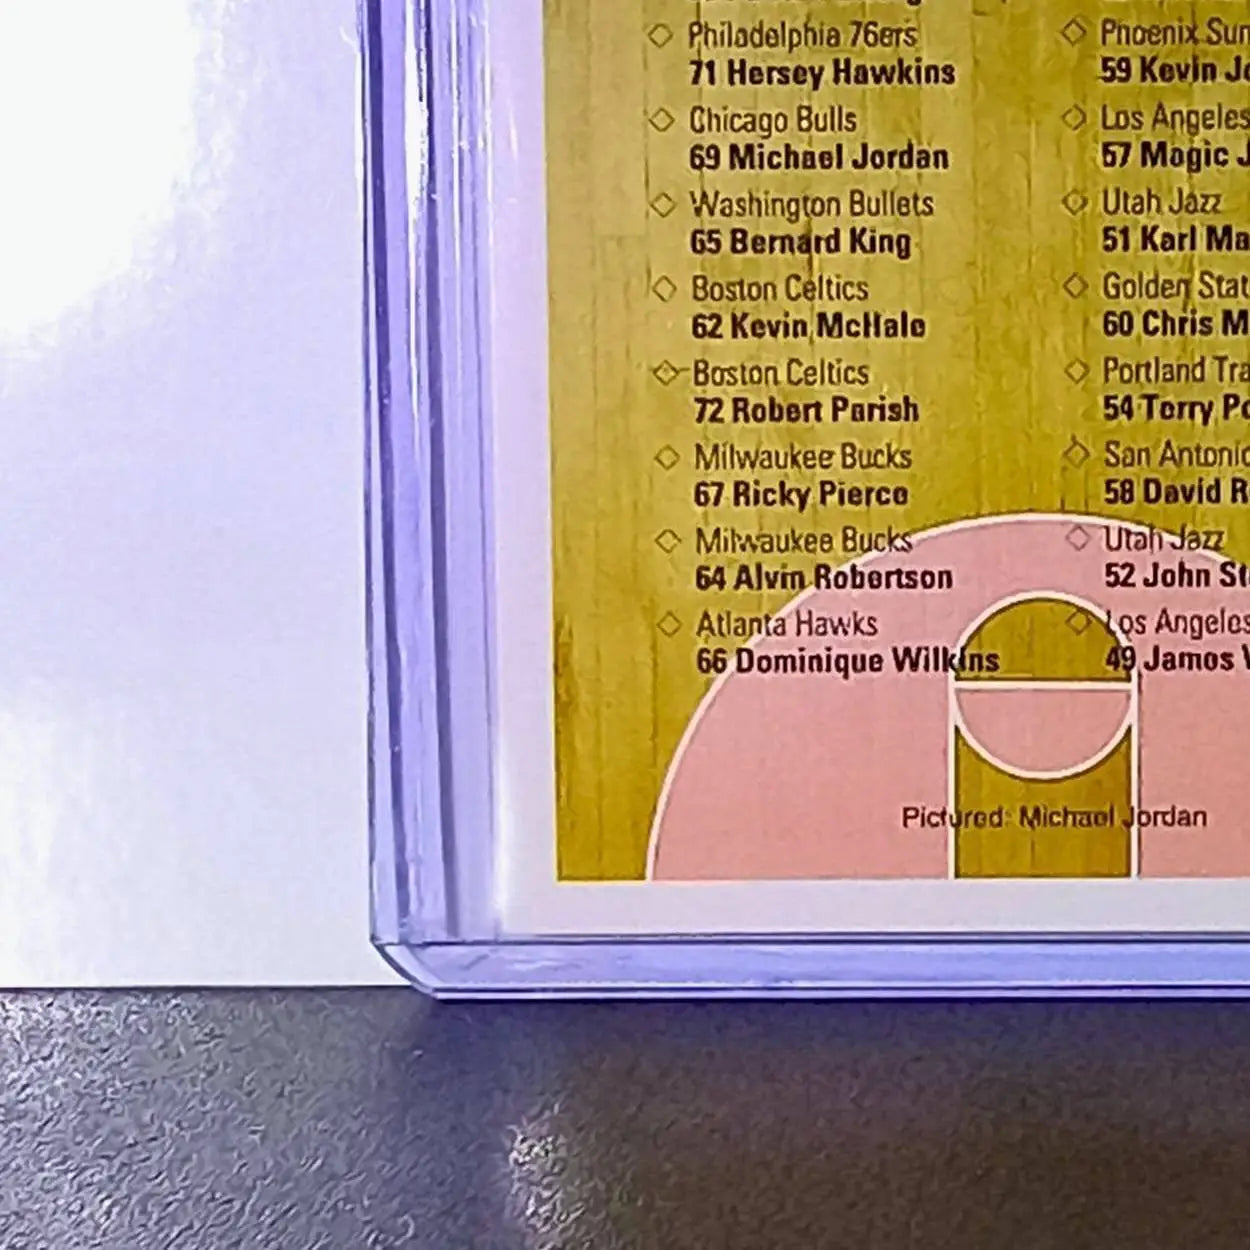 Philadelphia 76ers
71 Hersey Hawkins
Chicago Bulls
69 Michael Jordan
Washington Bullets
65 Bernard King
Boston Celtics
62 Kevin McHale
Boston Celtics
72 Robert Parish
Milwaukee Bucks
67 Ricky Pierce
Milwaukee Bucks
64 Alvin Robertson
Atlanta Hawks
66 Dominique Wilkins
Phoenix Sun
59 Kevin Jo
Los Angeles
57 Magic J
Utah Jazz
51 Karl Ma
Golden Stat
60 Chris M
Portland Tra
54 Terry Po
San Antonio
58 David R
Utah Jazz
52 John St
Los Angeles
49 James
Pictured: Michael Jordan